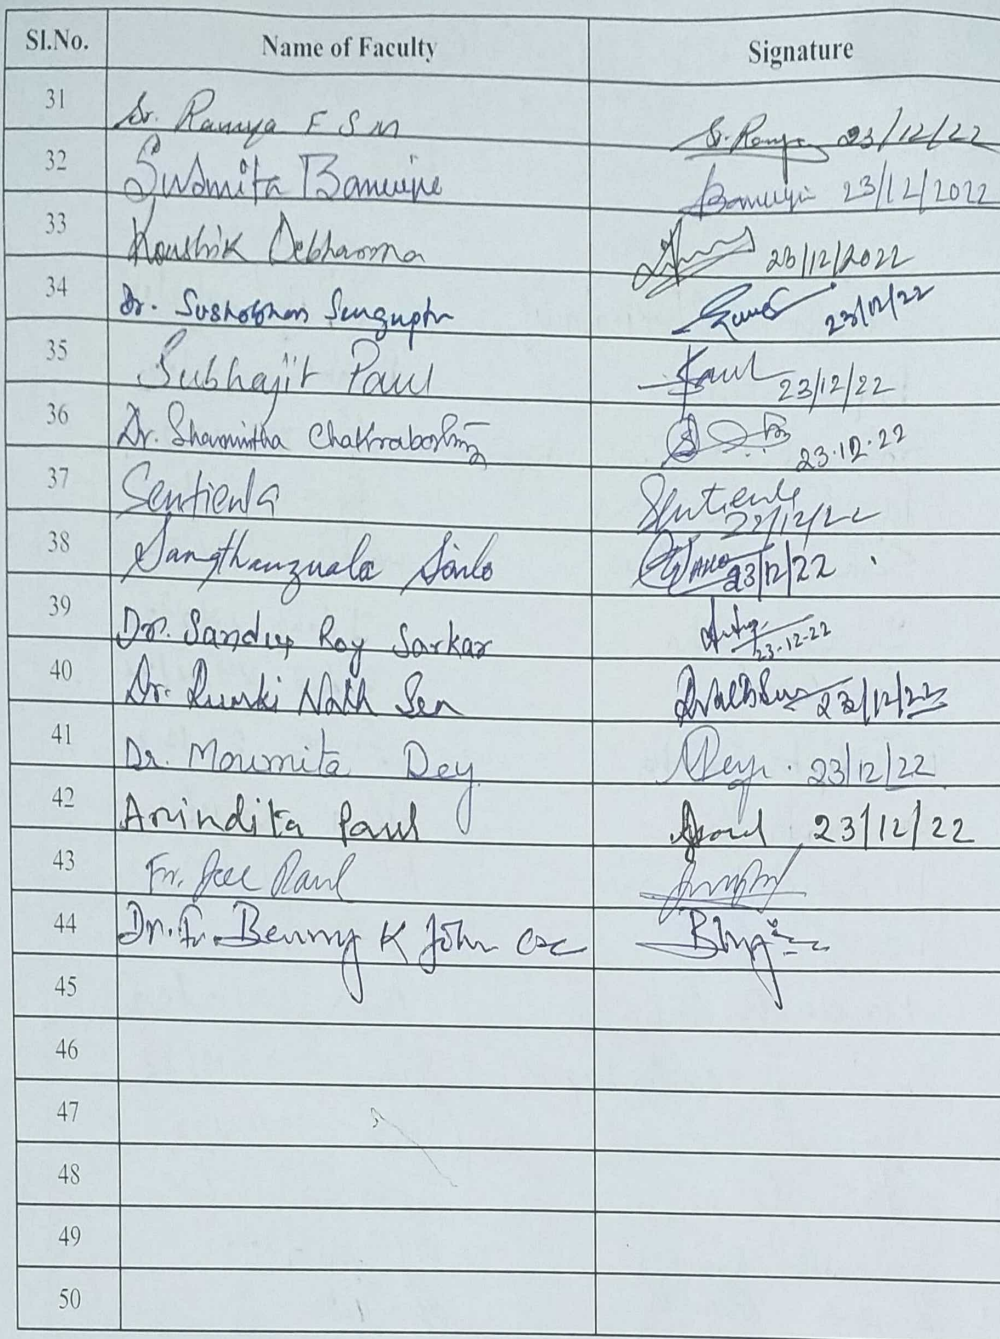 Sl.No. Name of Faculty Signature
31 Sr. Ramya F S M Sr. Ramya 23/12/22
32 Susmita Banerjee Banerjee 23/12/2022
33 Koushik Debbarma 23/12/2022
34 Dr. Sushobhan Sengupta 23/12/22
35 Subhajit Paul Paul 23/12/22
36 Dr. Sharmistha Chakraborty 23.12.22
37 Sentienla Sentienla 23/12/22
38 Sangthanzuala Sailo 23/12/22
39 Dr. Sandip Roy Sarkar 23-12-22
40 Dr. Rumki Nath Sen 23/12/22
41 Dr. Moumita Dey Dey. 23/12/22
42 Arindita Paul Apaul 23/12/22
43 Fr. Joe Paul
44 Dr. Fr. Benny K John csc
45
46
47
48
49
50